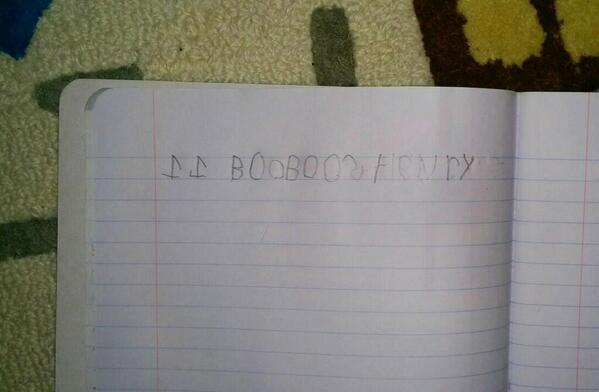 11 BOOBOOS HENRY